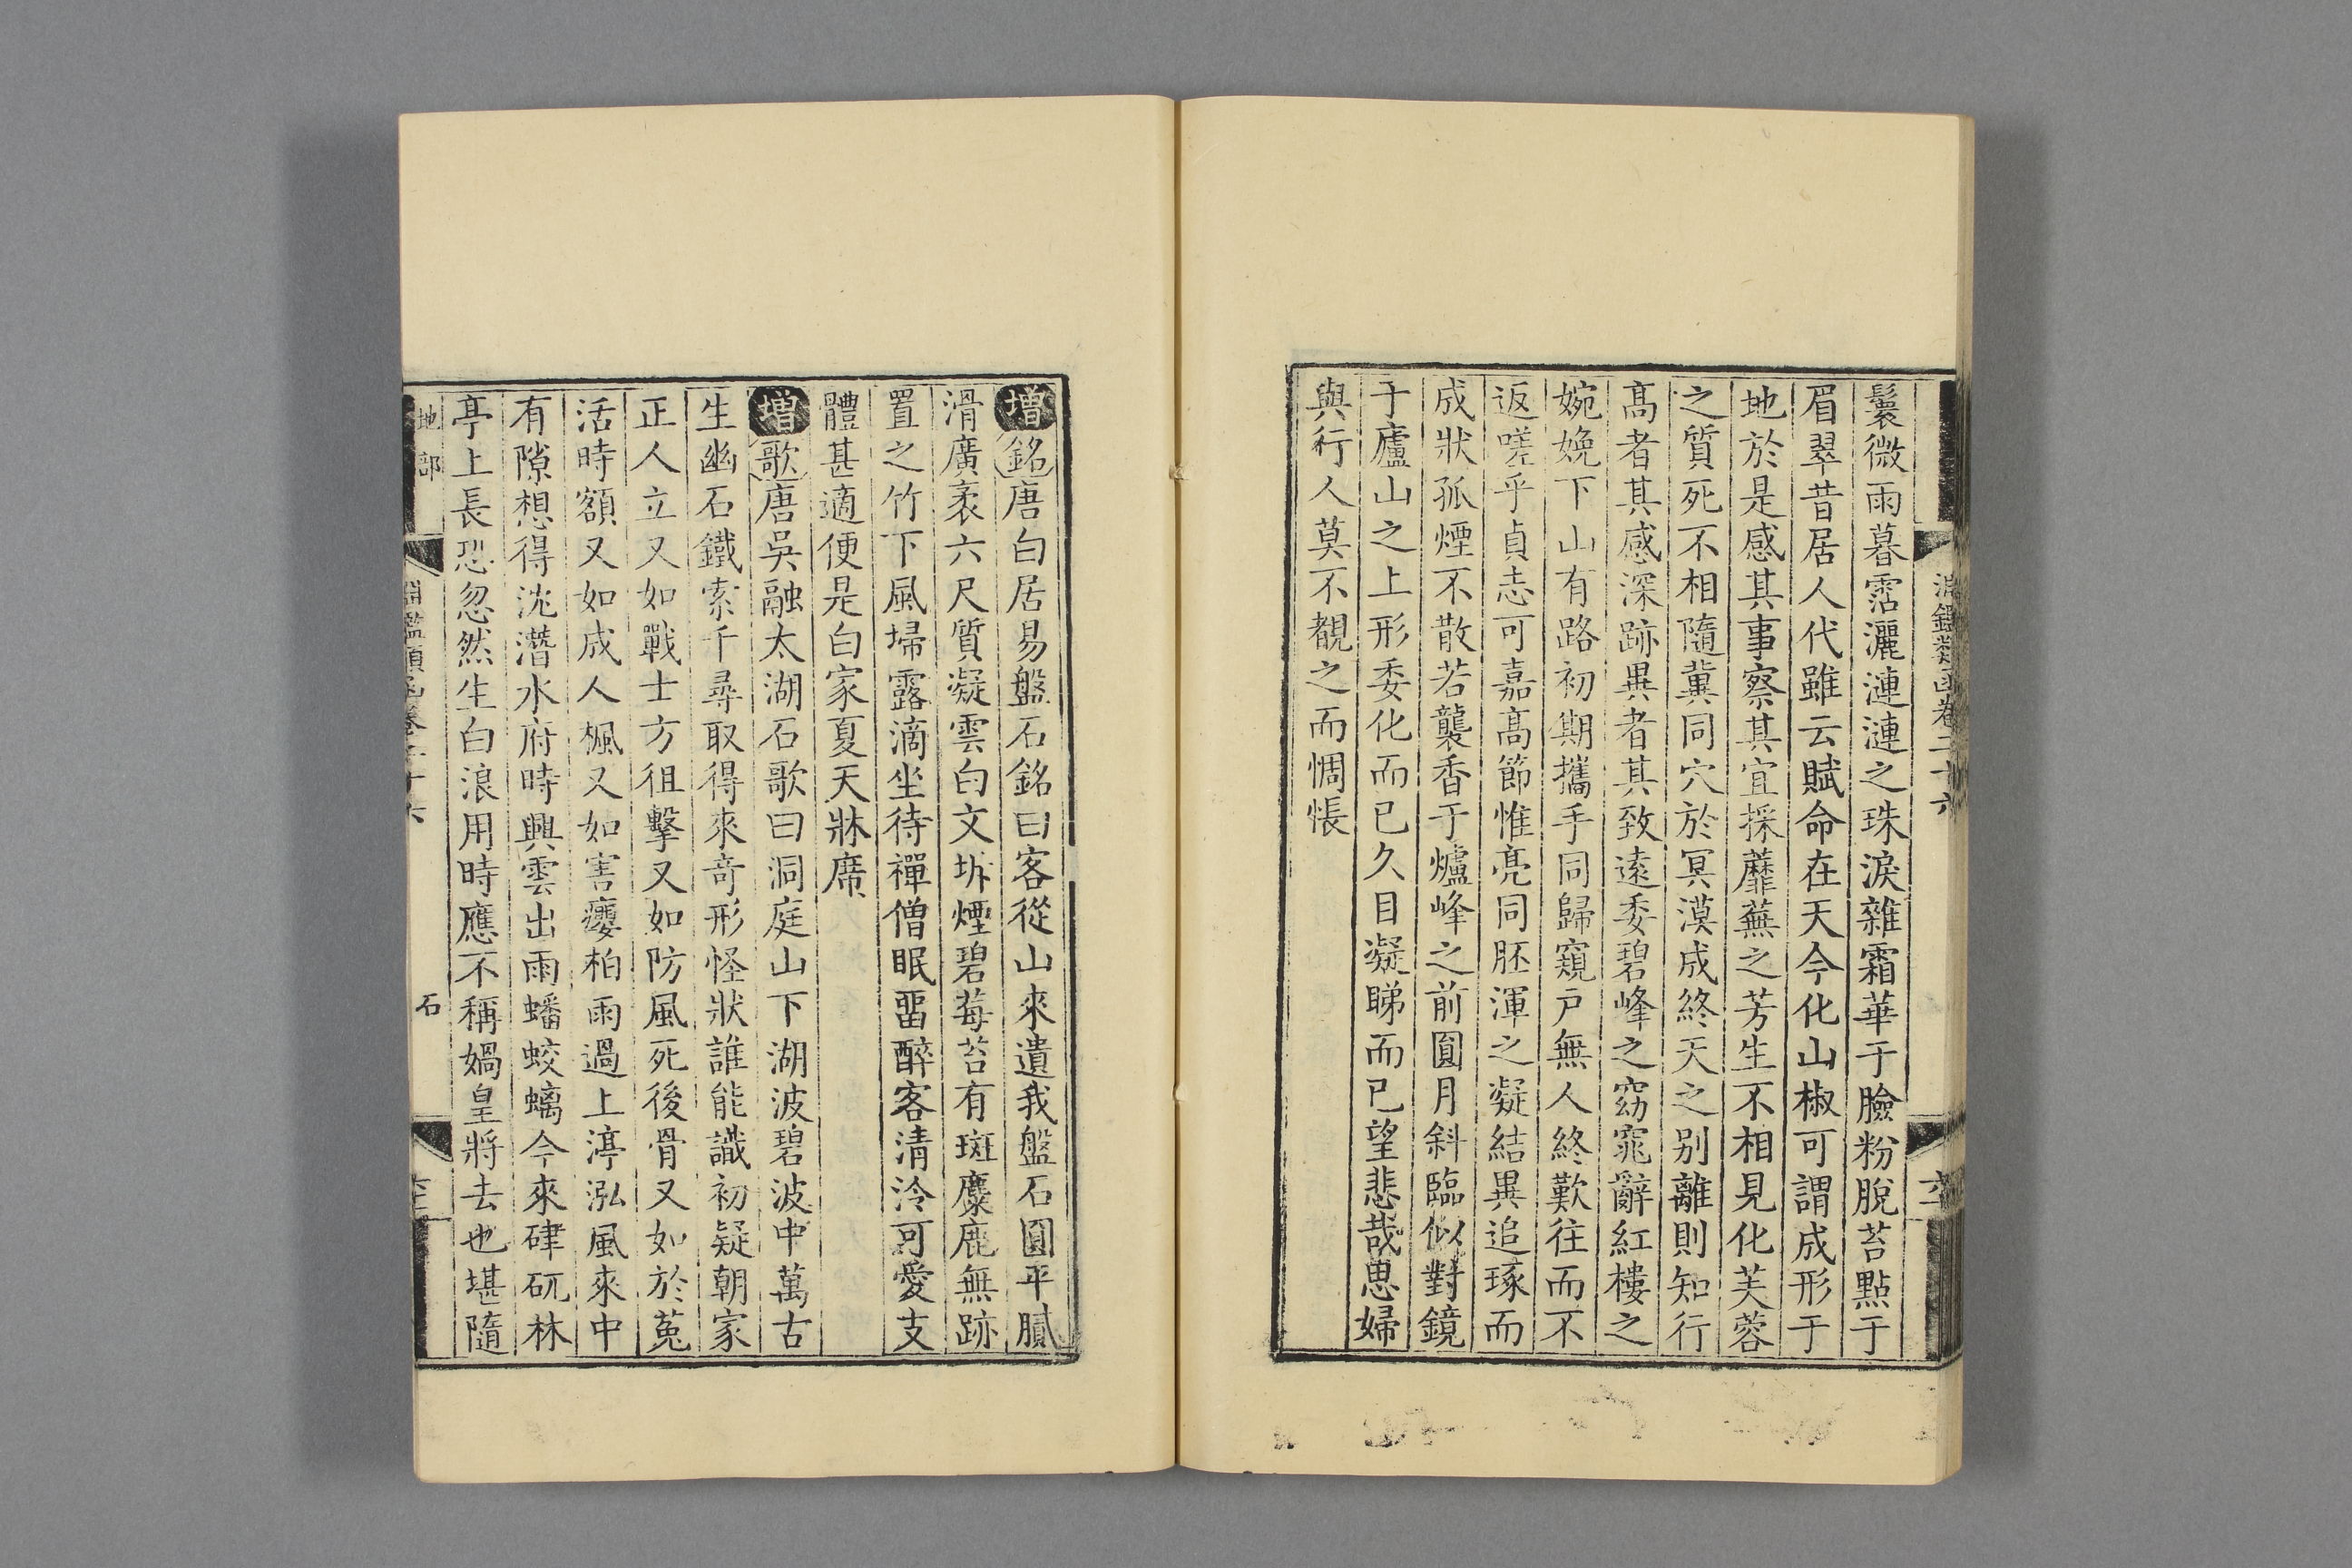 鬟微雨暮霑灑漣漣之珠淚雜霜華于臉粉脫苔點于
眉翠昔居人代雖云賦命在天今化山椒可謂成形于
地於是感其事察其宜採蘼蕪之芳生不相見化芙蓉
之質死不相隨冀同穴於冥漠成終天之別離則知行
高者其感深跡異者其致遠委碧峰之窈窕辭紅樓之
婉娩下山有路初期攜手同歸窺戶無人終歎往而不
返嗟乎貞志可嘉高節惟亮同胚渾之凝結異追琢而
成狀孤煙不散若襲香于爐峰之前圓月斜臨似對鏡
于廬山之上形委化而已久目凝睇而已望悲哉思婦
與行人莫不覩之而惆悵
增銘唐白居易盤石銘曰客從山來遺我盤石圓平膩
滑廣袤六尺質凝雲白文坼煙碧莓苔有斑麋鹿無跡
置之竹下風埽露滴坐待禪僧眠畱醉客清泠可愛支
體甚適便是白家夏天牀席
增歌唐吳融太湖石歌曰洞庭山下湖波碧波中萬古
生幽石鐵索千尋取得來奇形怪狀誰能識初疑朝家
正人立又如戰士方徂擊又如防風死後骨又如於菟
活時額又如成人楓又如害癭柏雨過上渟泓風來中
有隙想得沈潛水府時興雲出雨蟠蛟螭今來硉矹林
亭上長恐忽然生白浪用時應不稱媧皇將去也堪隨
地部 淵鑑類函卷二十六 石